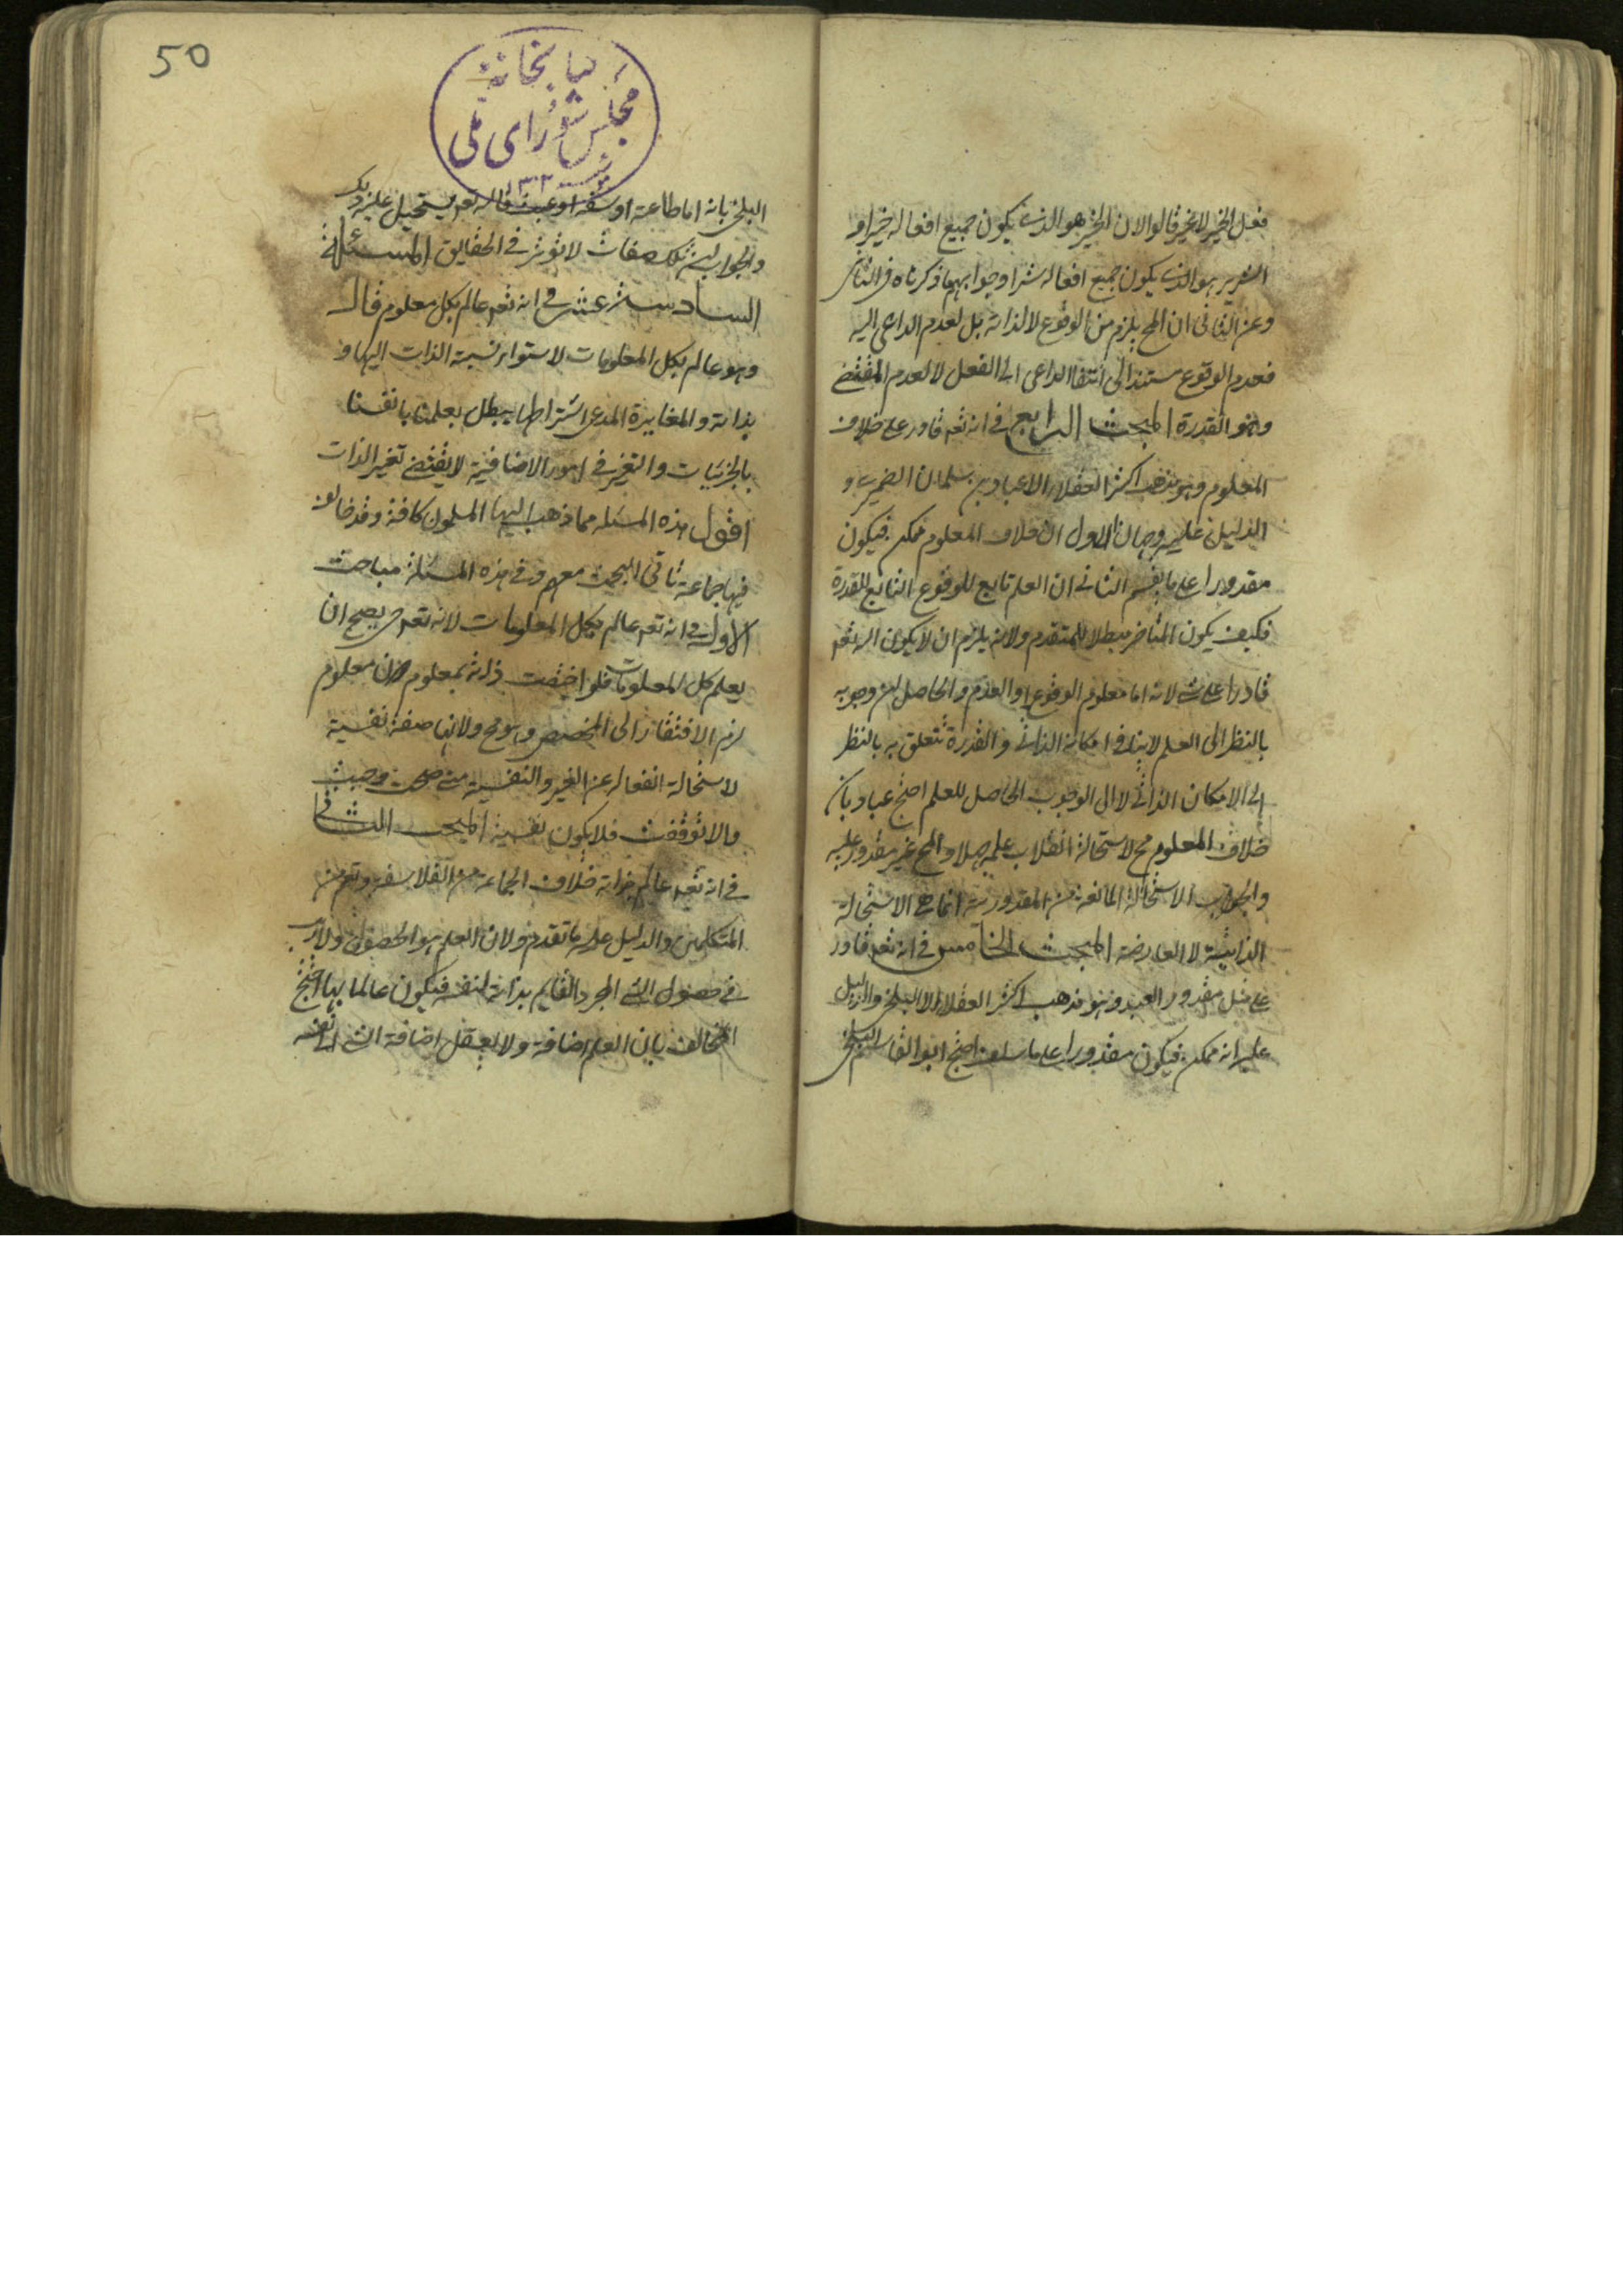 فعل الخير لاغير قالوا لان الخير هو الذى يكون جميع افعاله خيرا و
الشرير هو الذى يكون جميع افعاله شرا وجوابهما ذكرناه فى
وعن الثانى ان المح يلزم من الوقوع لا لذاته بل لعدم الداعى اليه
فعدم الوقوع مستند الى انتفا الداعى الى الفعل لا لعدم المقتضى
وهو القدرة المبحث الرابع فى انه تعه قادر على خلاف
المعلوم وهو مذهب اكثر العقلاء الا عباد بن سلمان الضميرى و
الدليل عليه وجهان الاول ان خلاف المعلوم ممكن فيكون
مقدورا على ما يقسم الثانى ان العلم تابع للوقوع التابع للقدرة
فكيف يكون المتاخر مبطلا للمتقدم ولانه يلزم ان لا يكون الله تعه
قادرا على شى لانه اما معلوم الوقوع او العدم والحاصل ان وجوبه
بالنظر الى العلم لا ينافى امكانه الذاتى والقدرة تتعلق به بالنظر
الى الامكان الذاتى لا الى الوجوب الحاصل للعلم احتج عباد بان
خلاف المعلوم مح لاستحالة انقلاب علمه جهلا والمح غير مقدور عليه
والجواب الاستحالة المانعة من المقدورية انما هى الاستحالة
الذاتية لا العارضة المبحث الخامس فى انه تعه قادر
على مثل مقدور العبد وهو مذهب اكثر العقلاء الا البلخى والدليل
عليه انه ممكن فيكون مقدورا على ما سلف احتج ابو القاسم البلخى
50
كتابخانه
مجلس شوراى ملى
البلخى بانه اما طاعة او سفه او عبث فالله تعه يستحيل عليه ذلك
والجواب ان تلك صفات لا تؤثر فى الحقايق المسئلة
السادسة عشر فى انه تعه عالم بكل معلوم قال
وهو عالم بكل المعلومات لاستواء نسبة الذات اليها و
بذاته والمغايرة المدعى اشتراطها يبطل بعلمنا بانفسنا
بالجزئيات والتغير فى امور الاضافية لا يقتضى تغير الذات
اقول هذه المسئله مما ذهب اليها المسلمون كافة وقد خالف
فيها جماعة ثاتى البحث معهم وفى هذه المسئلة مباحث
الاول فى انه تعه عالم بكل المعلومات لانه تعه حى يصح ان
يعلم كل المعلومات فلو اختصت ذاته بمعلوم دون معلوم
لزم الافتقار الى المخصص وهو مح ولانها صفة نفسية
لاستحالة انفعاله عن الغير والنفسية متى صحت وجبت
والا توقفت فلا يكون نفسية المبحث الثانى
فى انه تعه عالم بذاته خلاف الجماعة من الفلاسفه وقوم من
المتكلمين والدليل عليه ما تقدم ولان العلم هو الحصول ولا ريب
فى حصول الشى المجرد القايم بذاته لنفسه فيكون عالما بها احتج
المخالف بان العلم اضافة ولا يعقل اضافة الشى الى نفسه